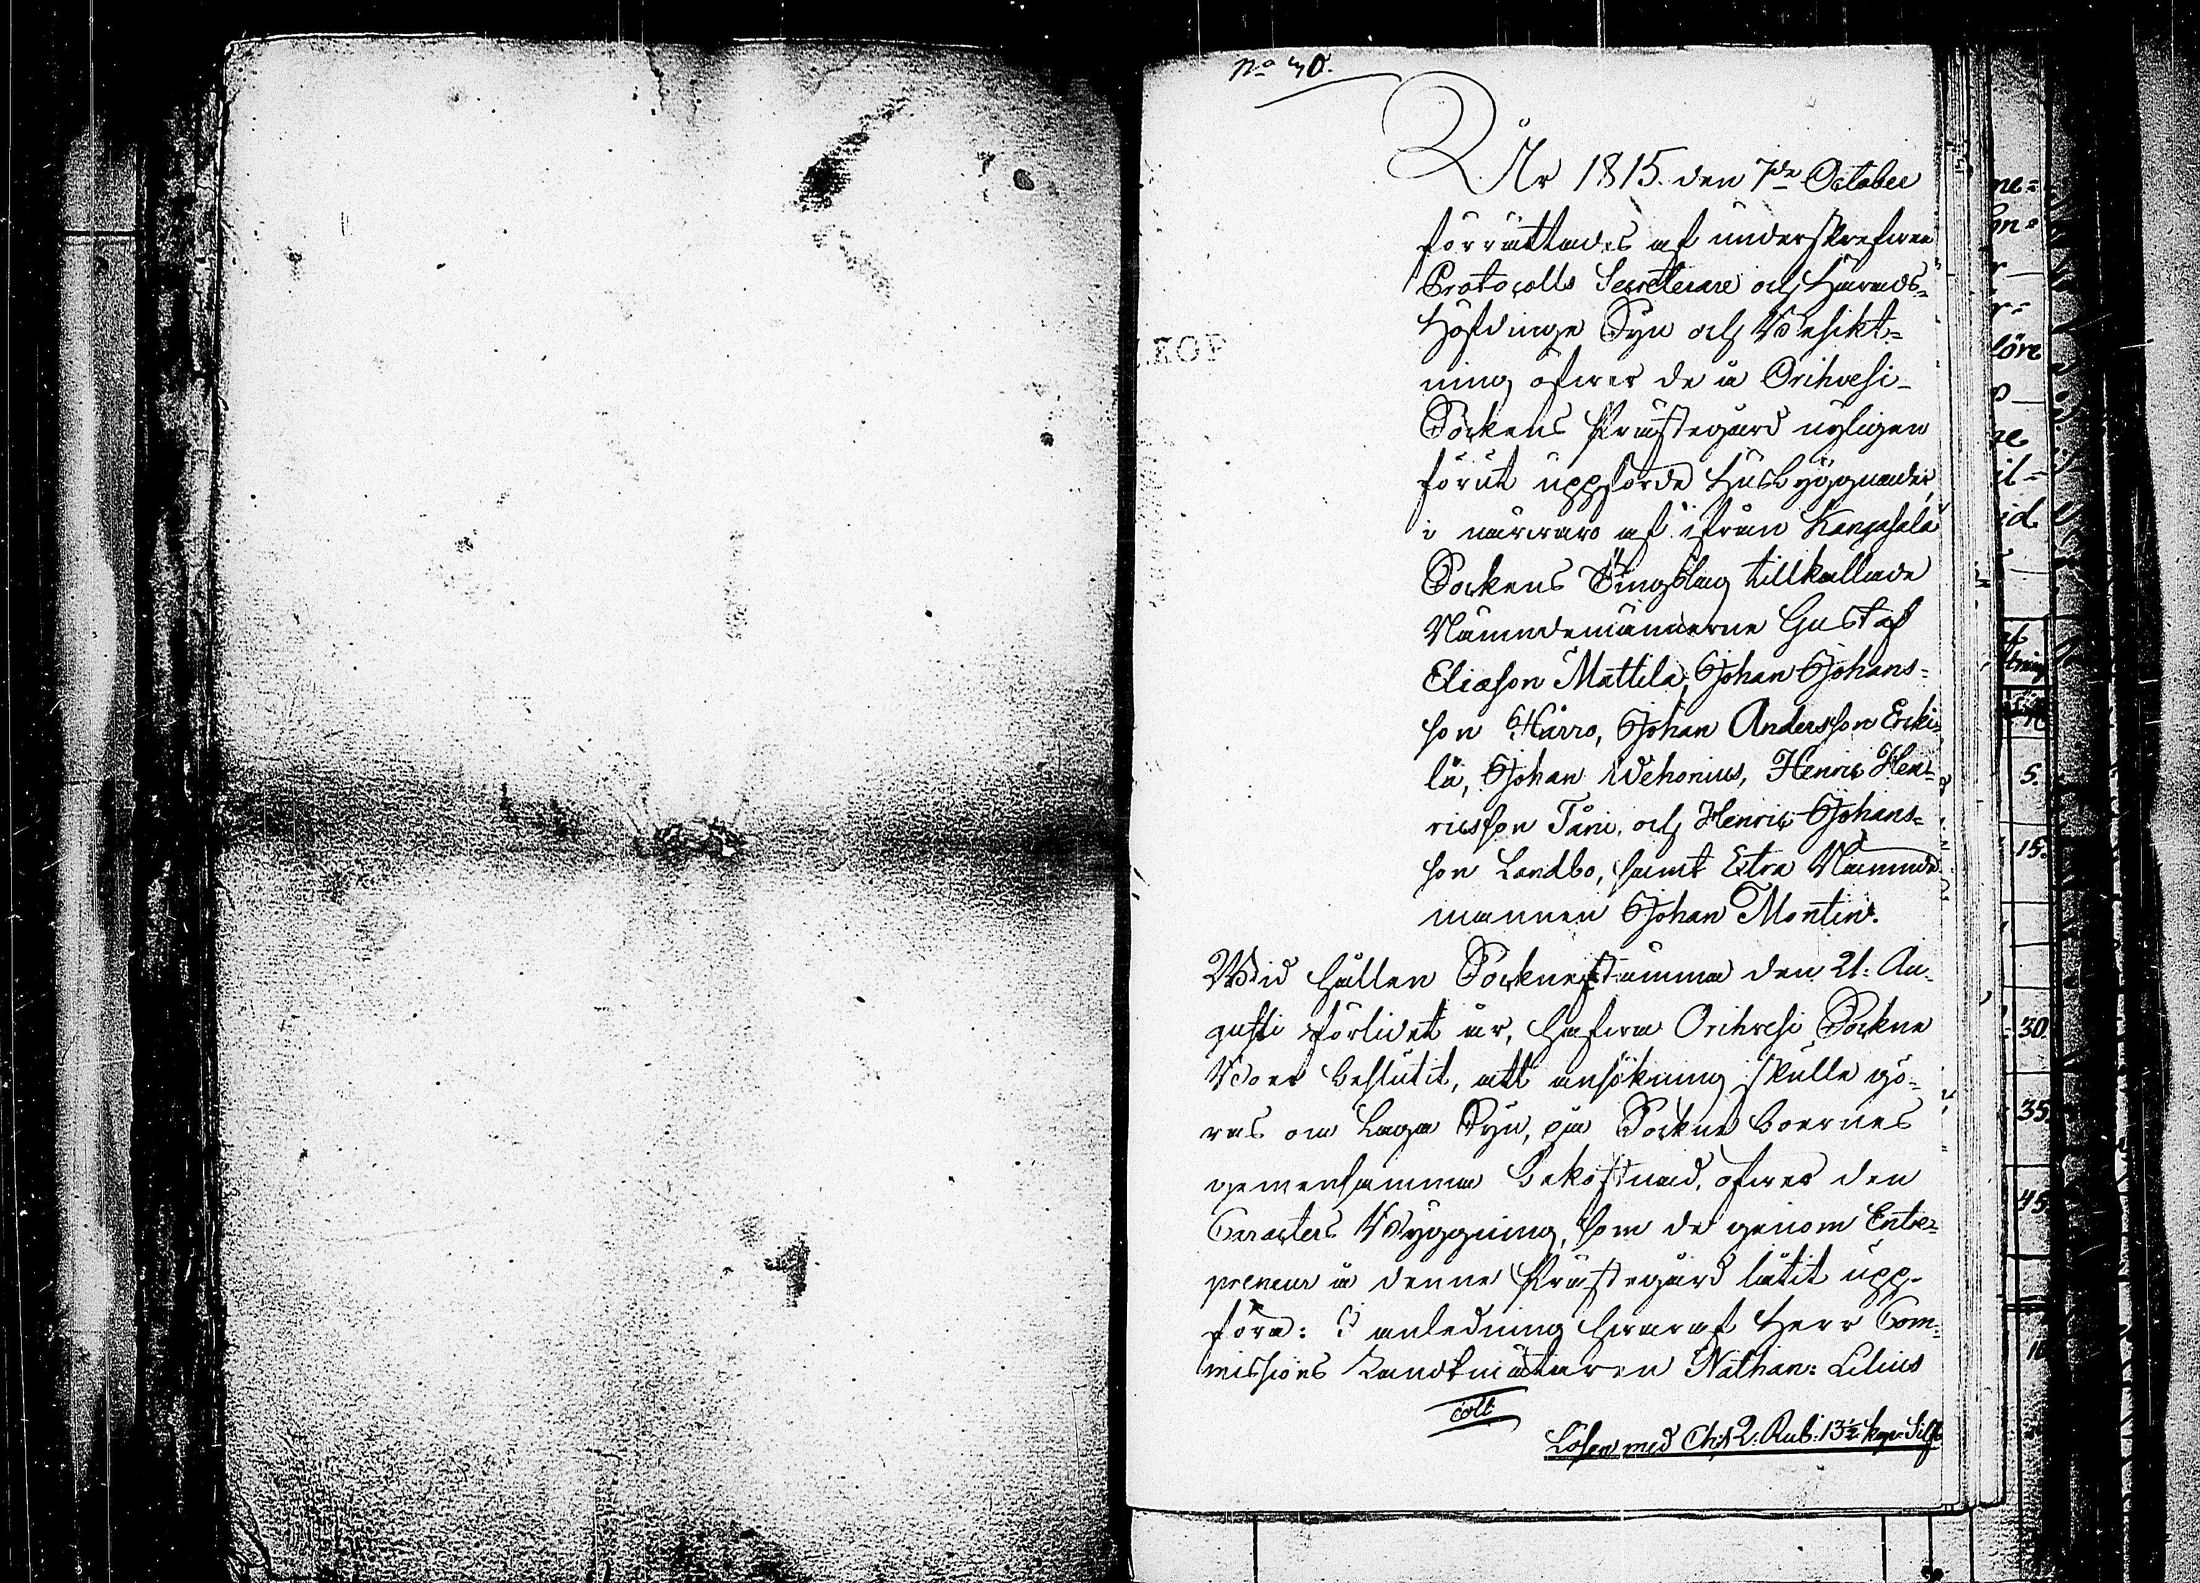 No 30.
År 1815. den 7de October
förrättades af underskrefven
Protocolls Secreterare och Härads-
Höfdinge Syn och Besikt-
ning öfver de å Orihvesi
Sockens Prästegård nyligen
förut uppförde Husbyggnader,
i närvaro af ifrån Kangasala
Sockens Tingslag tillkallade
Nämndemännerne Gustaf
Eliasson Mattila, Johan Johans-
son Härro, Johan Andersson Ercki-
lä, Johan Wehonius, Henric Hen-
ricsson Täni, och Henric Johans-
son Landbo, samt Extra Nämnde
mannen Johan Montin.
Wid hållen Socknestämma den 21. Au-
gusti förlidet år, hafva Orihvesi Sockne
Boer beslutit, att ansökning skulle gö-
ras om Laga Syn, på Sockne boernes
gemensamma bekostnad, öfver den
Caracters Byggning, som de genom Entre-
preneur å denne Prästegård låtit upp-
föra: I anledning hvaraf Herr Com-
missions Landtmätaren Nathan: Lilius
coll
Lösen med Ch: 2. Rub. 13½ kop. Silf